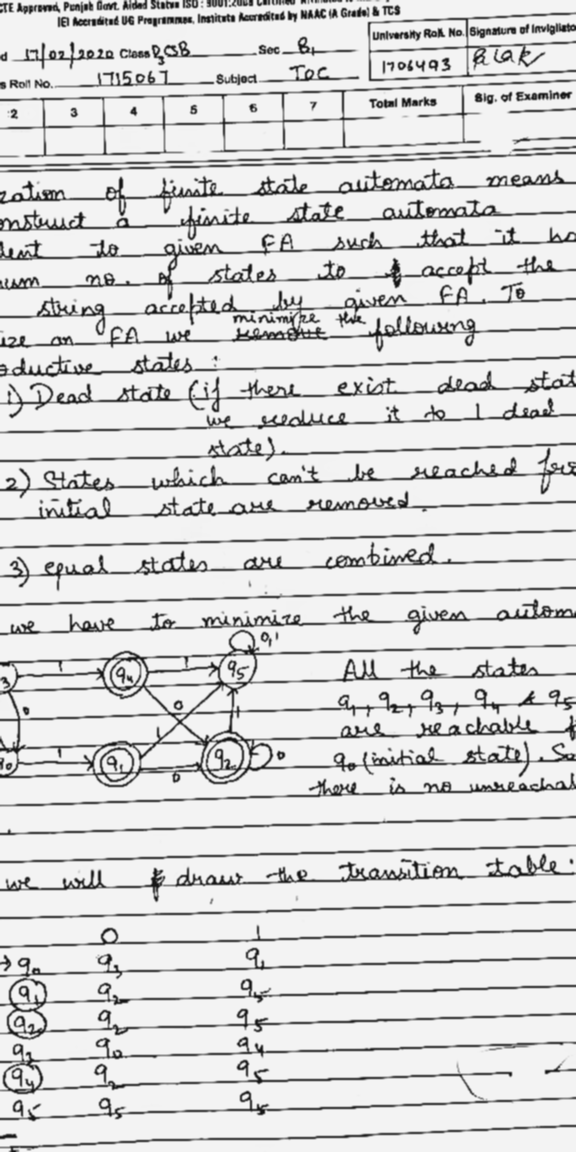 CTE Approved, Punjab Govt. Aided Status ISO : 9001:2008 Certified
IEI Accredited UG Programmes, Institute Accredited by NAAC (A Grade) & TCS
d 17/02/2020 Class D3CSB Sec B1 University Roll. No. Signature of Invigilato
s Roll No. 1715067 Subject TOC 1706493
2 3 4 5 6 7 Total Marks Sig. of Examiner
zation of finite state automata means
onstruct a finite state automata
lent to given FA such that it ha
num no. of states to accept the
string accepted by given FA. To
ize an FA we remove minimize the following
oductive states :
1) Dead state (if there exist dead stat
we reduce it to 1 dead
state).
2) States which can't be reached fro
initial state are removed.
3) equal states are combined.
we have to minimize the given autom
0,1
3 1 q4 1 q5 All the states
0 0 1 1 q1, q2, q3, q4 & q5
are reachable f
q0 1 q1 0 q2 0 q0 (initial state). So
there is no unreachal
we will draw the transition table:
0 1
→ q0 q3 q1
q1 q2 q5
q2 q2 q5
q3 q0 q4
q4 q2 q5
q5 q5 q5